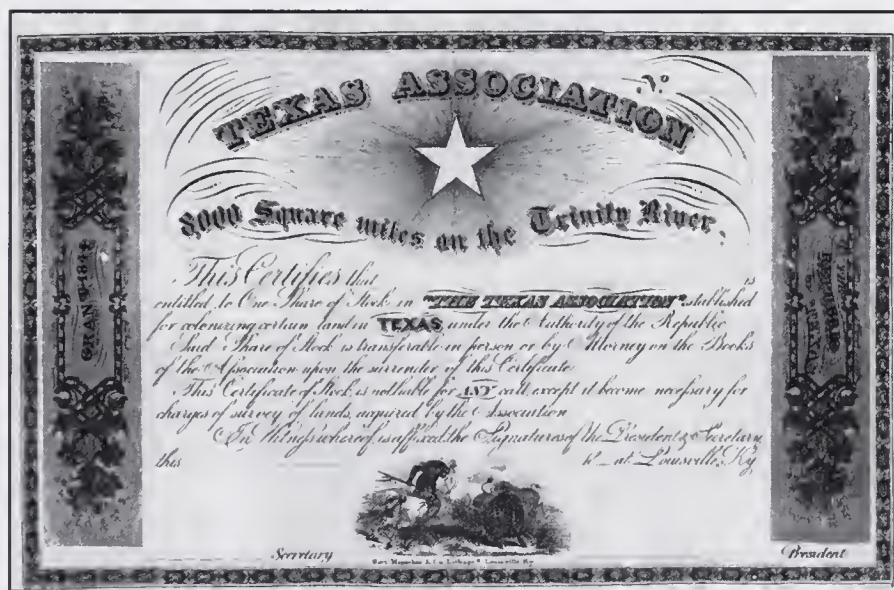 No
TEXAS ASSOCIATION
8,000 Square miles on the Trinity River.
This Certifies that is
entitled to One Share of Stock in "THE TEXAS ASSOCIATION" established
for colonizing certain land in TEXAS under the Authority of the Republic
Said Share of Stock is transferable in person or by Attorney on the Books
of the Association upon the surrender of this Certificate
This Certificate of Stock is not liable for ANY call, except it become necessary for
charges of survey of lands, acquired by the Association
In Witness whereof, is affixed the Signatures of the President & Secretary,
this 18 at Louisville, Ky
Secretary President
Louisville Ky
REPUBLIC
OF TEXAS